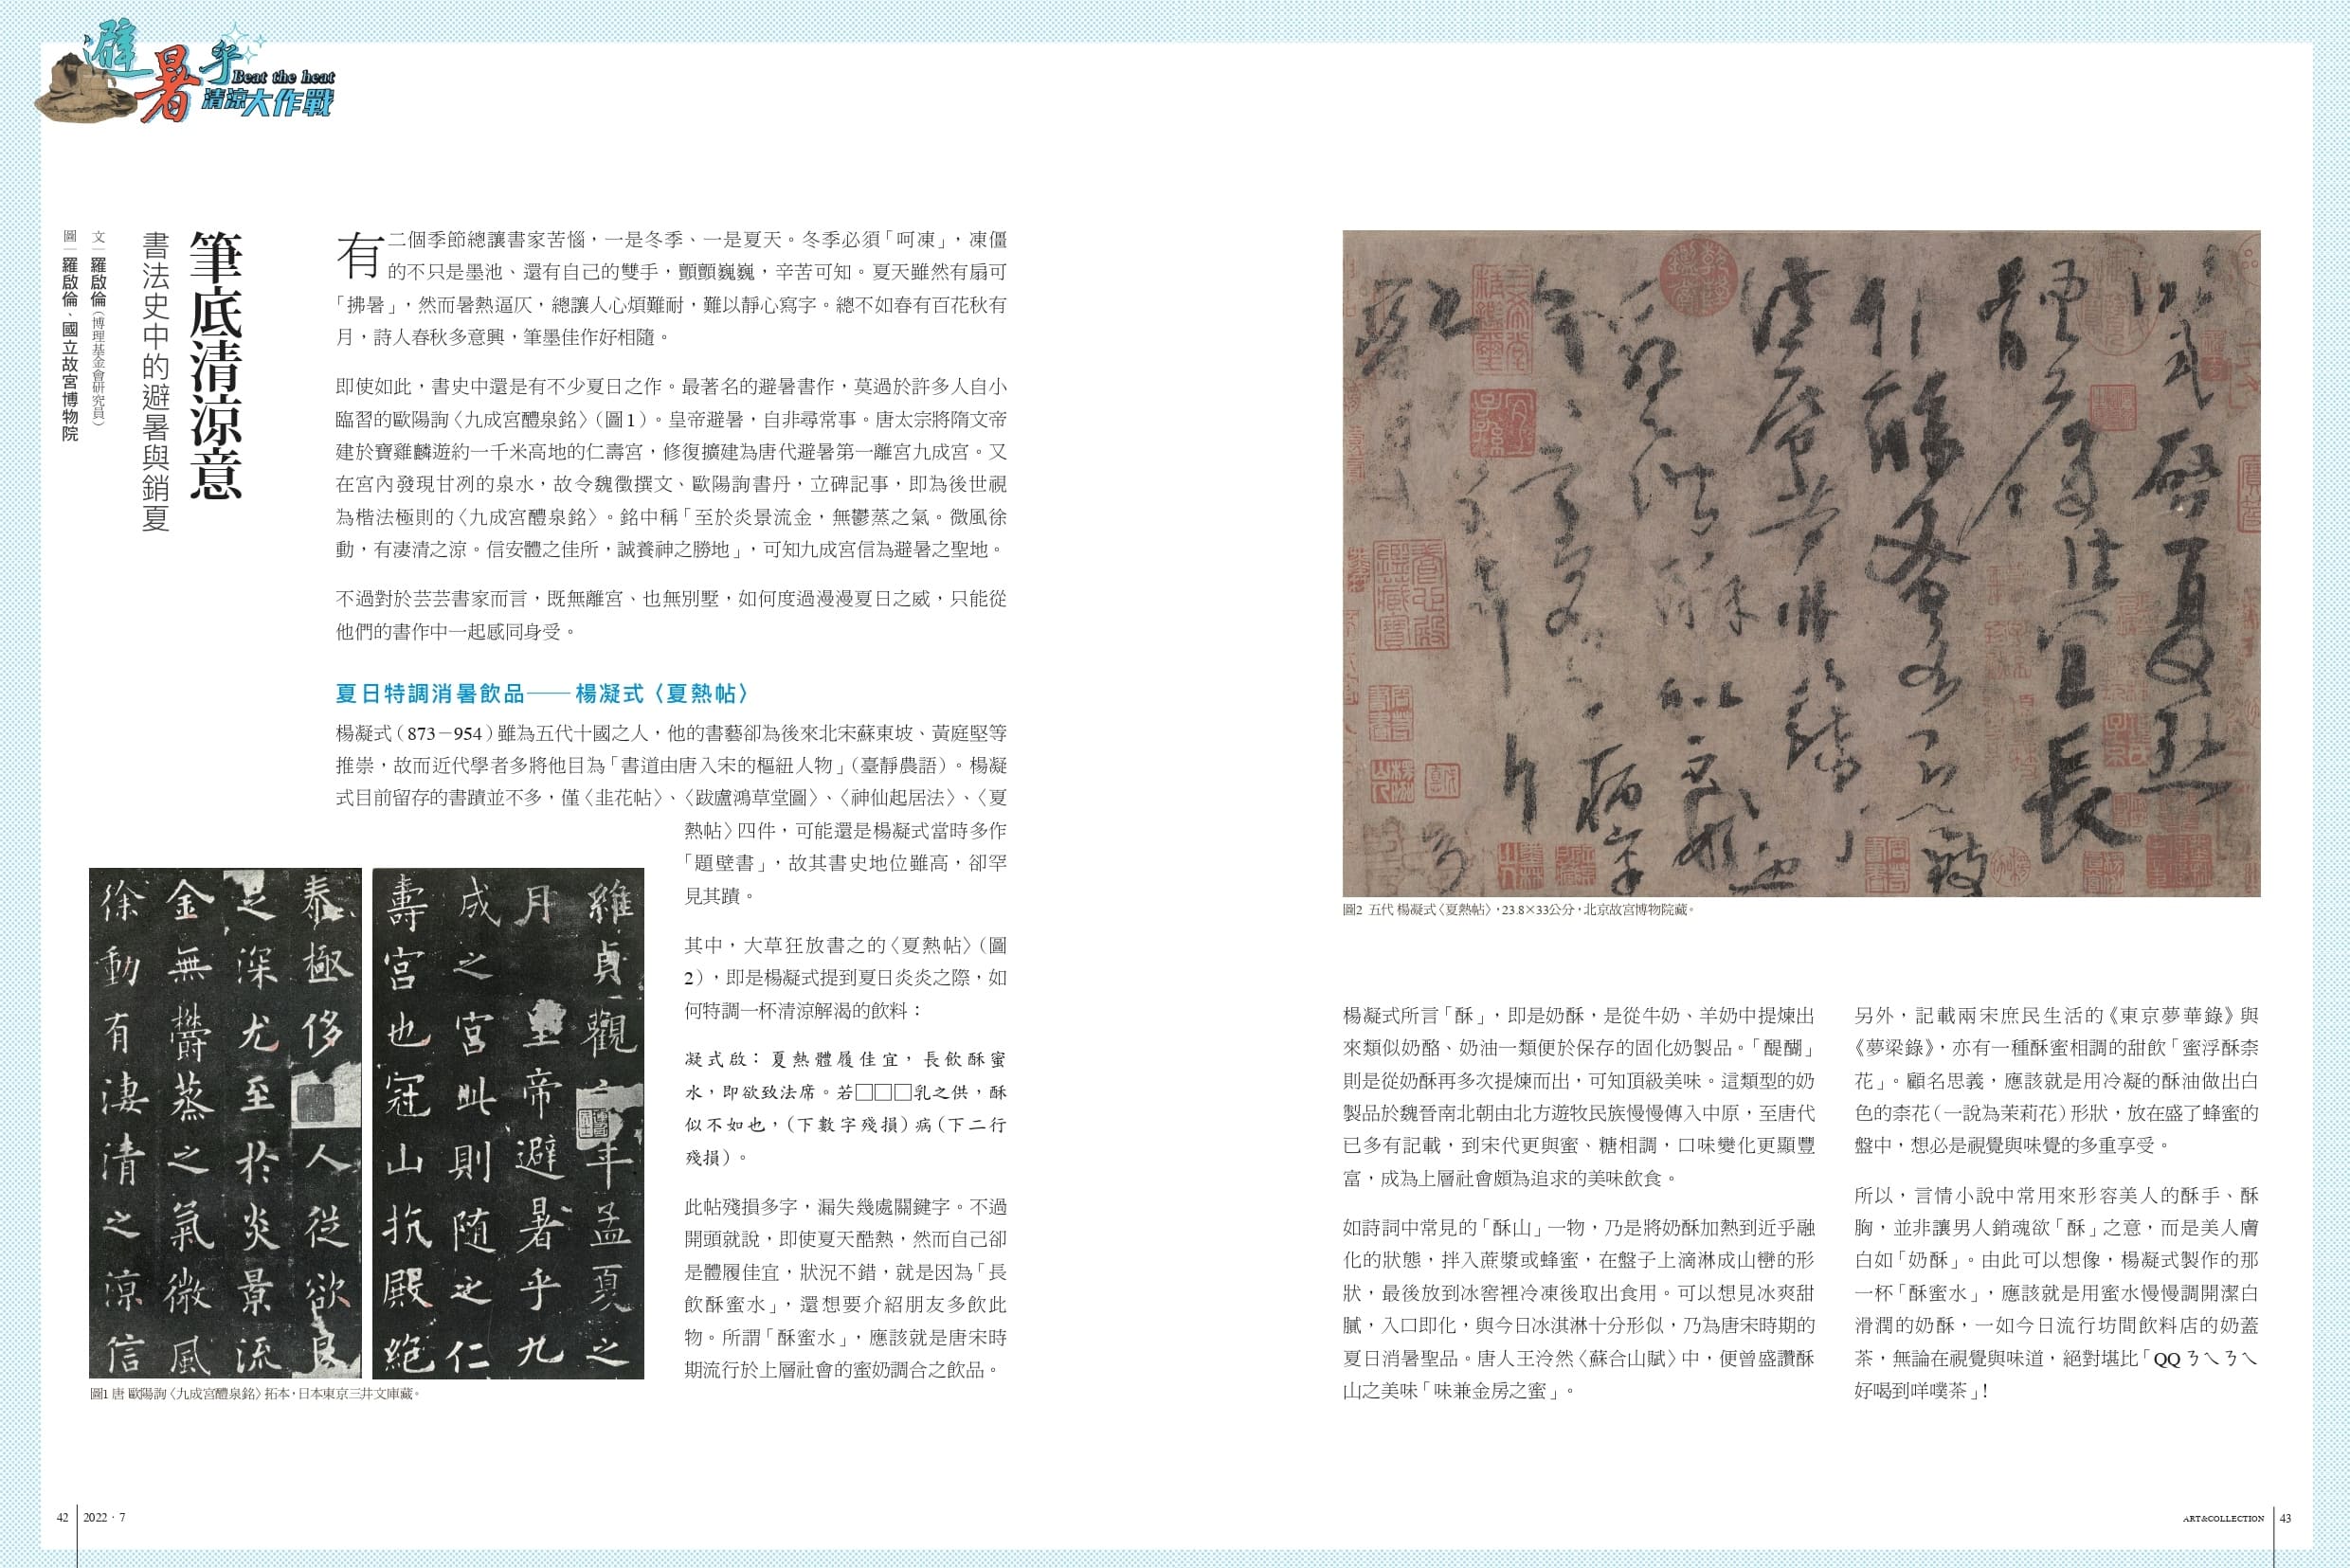 避暑乎
Beat the heat
清涼大作戰
筆底清涼意
書法史中的避暑與銷夏
文｜羅啟倫（博理基金會研究員）
圖｜羅啟倫、國立故宮博物院
有二個季節總讓書家苦惱，一是冬季、一是夏天。冬季必須「呵凍」，凍僵
的不只是墨池、還有自己的雙手，顫顫巍巍，辛苦可知。夏天雖然有扇可
「拂暑」，然而暑熱逼仄，總讓人心煩難耐，難以靜心寫字。總不如春有百花秋有
月，詩人春秋多意興，筆墨佳作好相隨。
即使如此，書史中還是有不少夏日之作。最著名的避暑書作，莫過於許多人自小
臨習的歐陽詢〈九成宮醴泉銘〉（圖1）。皇帝避暑，自非尋常事。唐太宗將隋文帝
建於寶雞麟遊約一千米高地的仁壽宮，修復擴建為唐代避暑第一離宮九成宮。又
在宮內發現甘冽的泉水，故令魏徵撰文、歐陽詢書丹，立碑記事，即為後世視
為楷法極則的〈九成宮醴泉銘〉。銘中稱「至於炎景流金，無鬱蒸之氣。微風徐
動，有淒清之涼。信安體之佳所，誠養神之勝地」，可知九成宮信為避暑之聖地。
不過對於芸芸書家而言，既無離宮、也無別墅，如何度過漫漫夏日之威，只能從
他們的書作中一起感同身受。
夏日特調消暑飲品——楊凝式〈夏熱帖〉
楊凝式（873－954）雖為五代十國之人，他的書藝卻為後來北宋蘇東坡、黃庭堅等
推崇，故而近代學者多將他目為「書道由唐入宋的樞紐人物」（臺靜農語）。楊凝
式目前留存的書蹟並不多，僅〈韭花帖〉、〈跋盧鴻草堂圖〉、〈神仙起居法〉、〈夏
熱帖〉四件，可能還是楊凝式當時多作
「題壁書」，故其書史地位雖高，卻罕
見其蹟。
其中，大草狂放書之的〈夏熱帖〉（圖
2），即是楊凝式提到夏日炎炎之際，如
何特調一杯清涼解渴的飲料：
凝式啟：夏熱體履佳宜，長飲酥蜜
水，即欲致法席。若□□□乳之供，酥
似不如也，（下數字殘損）病（下二行
殘損）。
此帖殘損多字，漏失幾處關鍵字。不過
開頭就說，即使夏天酷熱，然而自己卻
是體履佳宜，狀況不錯，就是因為「長
飲酥蜜水」，還想要介紹朋友多飲此
物。所謂「酥蜜水」，應該就是唐宋時
期流行於上層社會的蜜奶調合之飲品。
維貞觀六年孟夏之
月皇帝避暑乎九
成之宮此則随之仁
壽宮也冠山抗殿絕
泰極侈人從欲良
足深尤至於炎景流
金無鬱蒸之氣微風
徐動有淒清之涼信
圖1 唐 歐陽詢〈九成宮醴泉銘〉拓本，日本東京三井文庫藏。
42
2022．7
凝式啟夏熱
體履佳宜長
圖2 五代 楊凝式〈夏熱帖〉，23.8×33公分，北京故宮博物院藏。
楊凝式所言「酥」，即是奶酥，是從牛奶、羊奶中提煉出
來類似奶酪、奶油一類便於保存的固化奶製品。「醍醐」
則是從奶酥再多次提煉而出，可知頂級美味。這類型的奶
製品於魏晉南北朝由北方遊牧民族慢慢傳入中原，至唐代
已多有記載，到宋代更與蜜、糖相調，口味變化更顯豐
富，成為上層社會頗為追求的美味飲食。
如詩詞中常見的「酥山」一物，乃是將奶酥加熱到近乎融
化的狀態，拌入蔗漿或蜂蜜，在盤子上滴淋成山巒的形
狀，最後放到冰窖裡冷凍後取出食用。可以想見冰爽甜
膩，入口即化，與今日冰淇淋十分形似，乃為唐宋時期的
夏日消暑聖品。唐人王泠然〈蘇合山賦〉中，便曾盛讚酥
山之美味「味兼金房之蜜」。
另外，記載兩宋庶民生活的《東京夢華錄》與
《夢梁錄》，亦有一種酥蜜相調的甜飲「蜜浮酥柰
花」。顧名思義，應該就是用冷凝的酥油做出白
色的柰花（一說為茉莉花）形狀，放在盛了蜂蜜的
盤中，想必是視覺與味覺的多重享受。
所以，言情小說中常用來形容美人的酥手、酥
胸，並非讓男人銷魂欲「酥」之意，而是美人膚
白如「奶酥」。由此可以想像，楊凝式製作的那
一杯「酥蜜水」，應該就是用蜜水慢慢調開潔白
滑潤的奶酥，一如今日流行坊間飲料店的奶蓋
茶，無論在視覺與味道，絕對堪比「QQㄋㄟㄋㄟ
好喝到咩噗茶」！
ART&COLLECTION
43